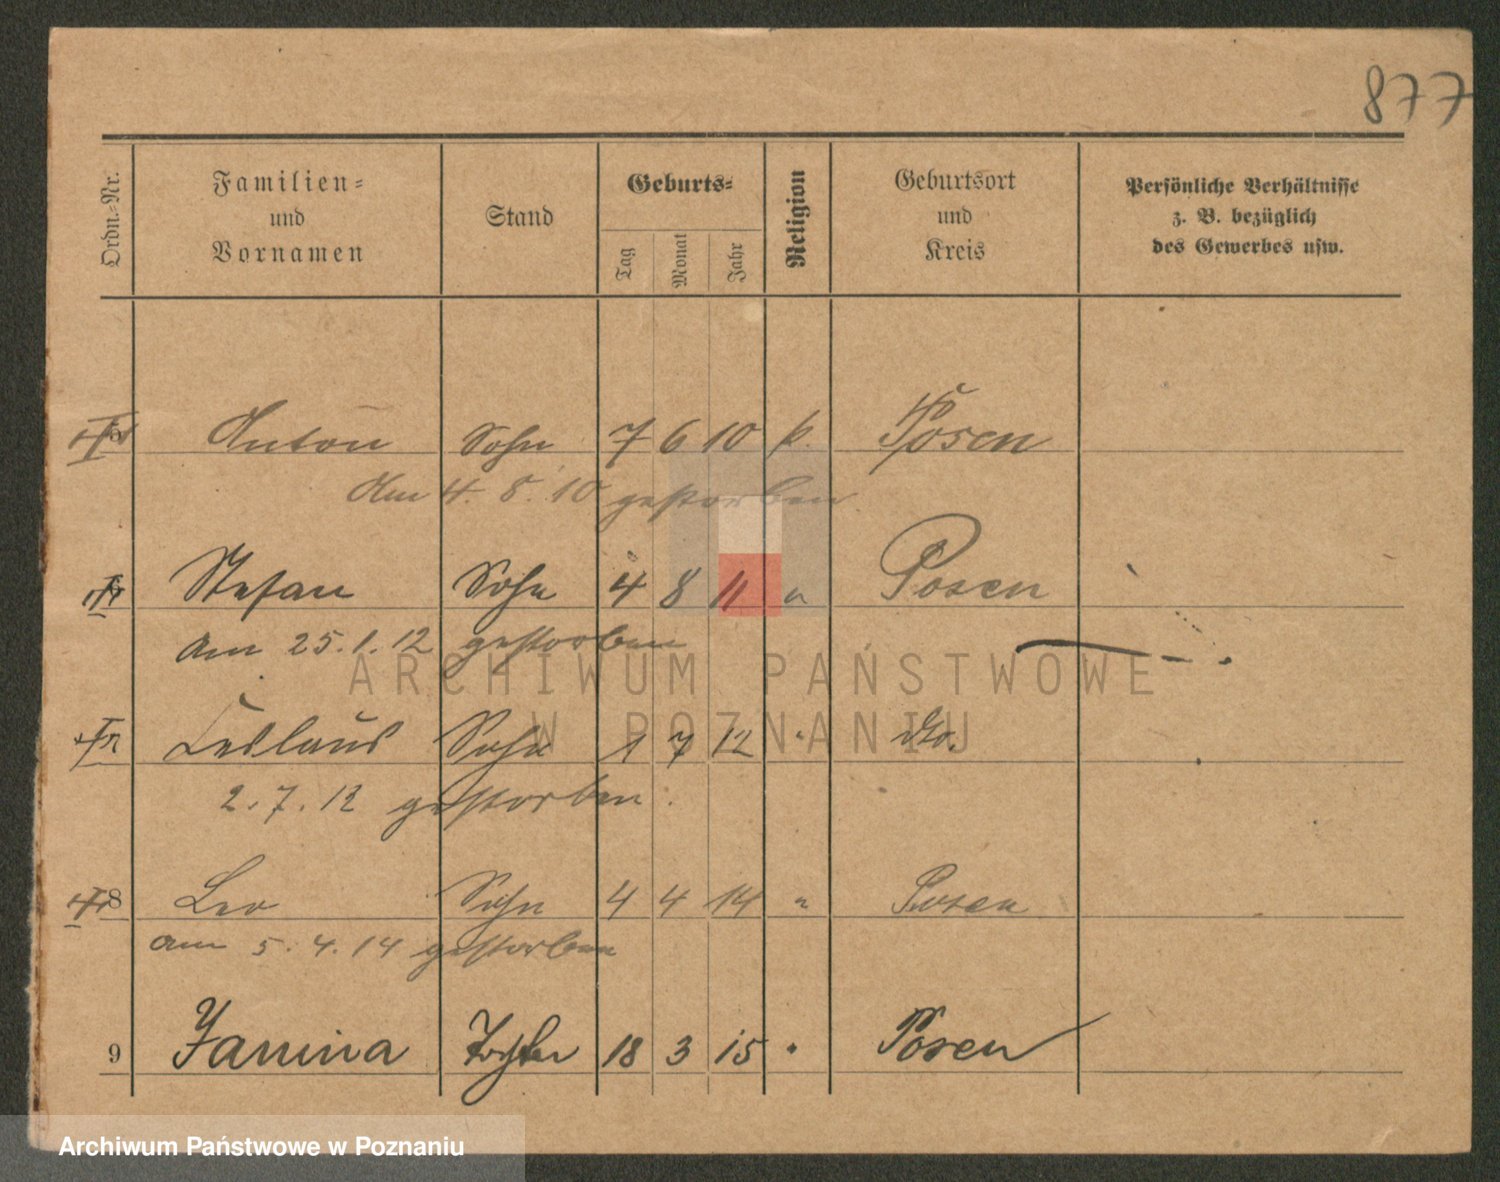 877
Ordn.-Nr.
Familien- und Vornamen
Stand
Geburts-
Tag Monat Jahr
Religion
Geburtsort und Kreis
Persönliche Verhältnisse z. B. bezüglich des Gewerbes usw.
Anton Sohn 7 6 10 k. Posen
Am 4. 8. 10 gestorben
Stefan Sohn 4 8 11 " Posen
am 25. 1. 12 gestorben
Ladlaus Sohn 1 7 12 " dto.
2. 7. 12 gestorben.
8 Leo Sohn 4 4 14 " Posen
am 5. 4. 14 gestorben
9 Janina Tochter 18 3 15 " Posen
ARCHIWUM PAŃSTWOWE
W POZNANIU
Archiwum Państwowe w Poznaniu